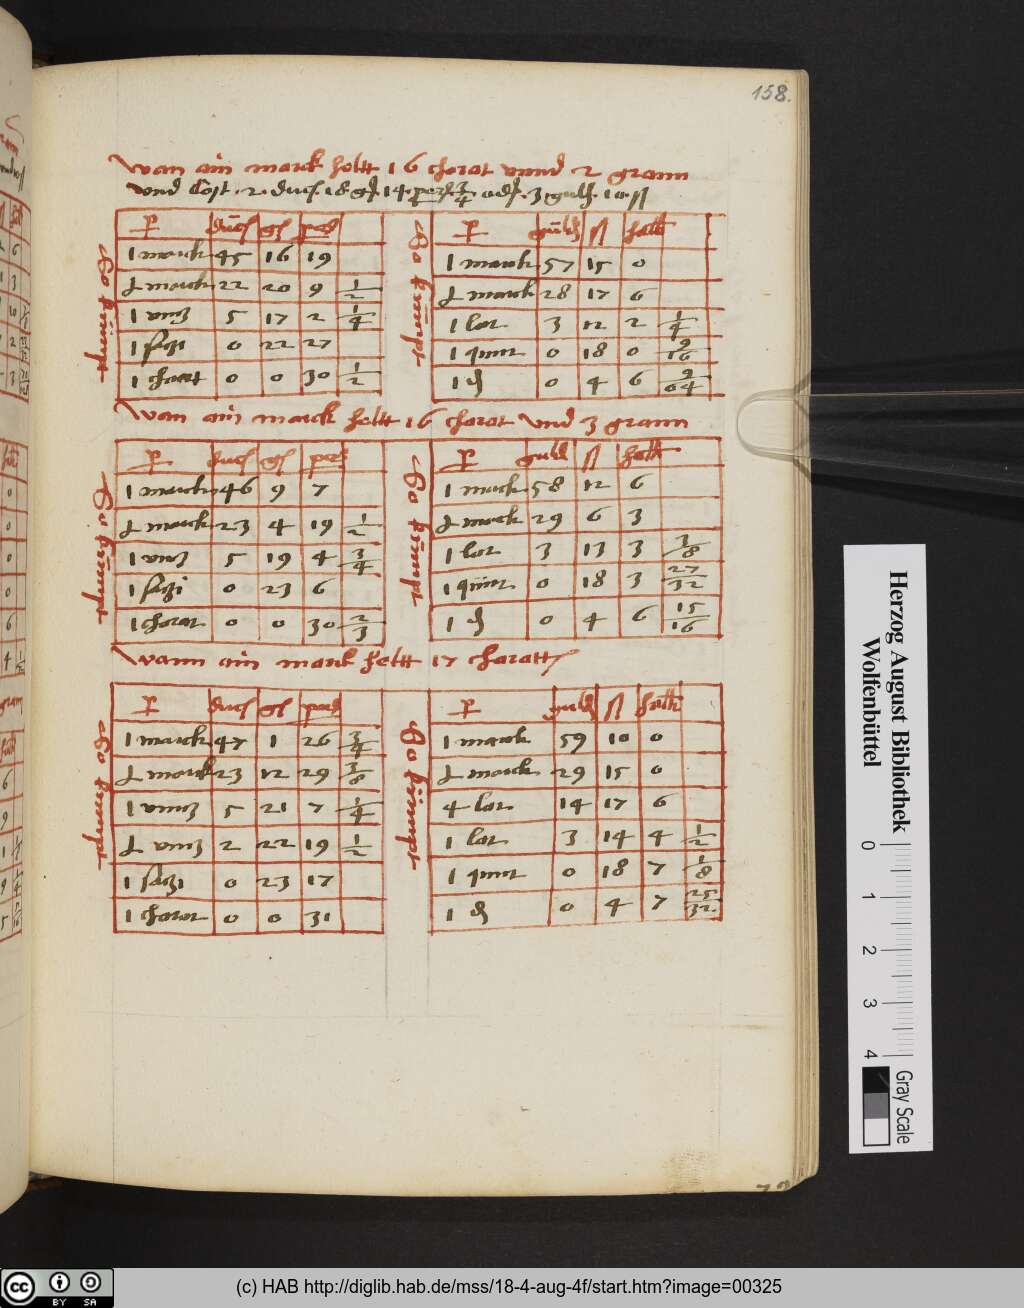 158.
wan ain marck heltt 16 charat vnnd 2 grann
vnd Cost 2 duc 18 gß 14 3/4 3 guld 10 ß
So kumpt
P duc gß
1 marck 45 16 19
½ marck 22 20 9 1/2
1 vntz 5 17 2 1/4
1 0 22 27
1 charat 0 0 30 1/2
So kumpt
P guld ß hallr
1 marck 57 15 0
½ marck 28 17 6
1 lot 3 12 2 1/4
1 quint 0 18 0 9/16
1 ₰ 0 4 6 9/64
wan ain marck heltt 16 charat vnd 3 grann
So kumpt
P duc gß
1 marck 46 9 7
½ marck 23 4 19 1/2
1 vntz 5 19 4 3/4
1 0 23 6
1 charat 0 0 30 2/3
So kumpt
P guld ß hallr
1 marck 58 12 6
½ marck 29 6 3
1 lot 3 13 3 3/8
1 quint 0 18 3 27/32
1 ₰ 0 4 6 15/16
wann ain marck heltt 17 charatt
So kumpt
P duc gß
1 marck 47 1 26 3/4
½ marck 23 12 29 3/8
1 vntz 5 21 7 1/4
½ vntz 2 22 19 1/2
1 0 23 17
1 charat 0 0 31
So kumpt
P guld ß hallr
1 marck 59 10 0
½ marck 29 15 0
4 lot 14 17 6
1 lot 3 14 4 1/2
1 quint 0 18 7 1/8
1 ₰ 0 4 7 25/32
Herzog August Bibliothek
Wolfenbüttel
0 1 2 3 4
Gray Scale
cc BY SA
(c) HAB http://diglib.hab.de/mss/18-4-aug-4f/start.htm?image=00325